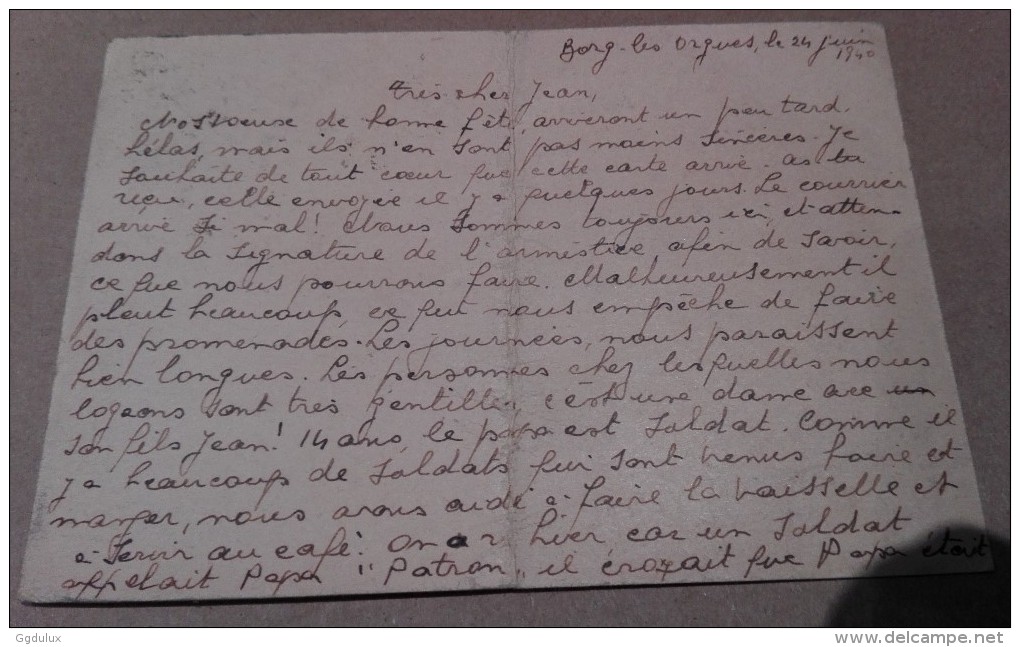 Borg-les Orgues, le 24 juin
1940
très cher Jean,
de bonne fête, arriveront un peu tard.
hélas, mais ils n'en sont pas moins sincères. Je
souhaite de tout cœur que cette carte arrive. as tu
reçu, celle envoyée il y a quelques jours. Le courrier
arrive si mal! Nous sommes toujours ici, et atten-
dons la signature de l'armistice afin de savoir,
ce que nous pourrons faire. Malheureusement il
pleut beaucoup, ce qui nous empêche de faire
des promenades. Les journées, nous paraissent
bien longues. Les personnes chez lesquelles nous
logeons sont très gentilles, c'est une dame avec
son fils Jean! 14 ans, le papa est soldat. Comme il
y a beaucoup de soldats qui sont venus boire et
manger, nous avons aidé à faire la vaisselle et
à servir au café! On a ri hier car un soldat
appelait Papa "Patron" il croyait que Papa était
Ggdulux
www.delcampe.net